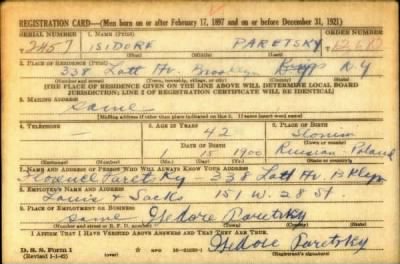 REGISTRATION CARD—(Men born on or after February 17, 1897 and on or before December 31, 1921)
SERIAL NUMBER 1. NAME (Print) ORDER NUMBER
2457 ISIDORE PARETSKY
2. PLACE OF RESIDENCE (Print)
338 Lott Av. Brooklyn Kings N.Y
(Number and street) (Town, township, village, or city) (County) (State)
[THE PLACE OF RESIDENCE GIVEN ON THE LINE ABOVE WILL DETERMINE LOCAL BOARD
JURISDICTION; LINE 2 OF REGISTRATION CERTIFICATE WILL BE IDENTICAL]
3. MAILING ADDRESS
Same
[Mailing address if other than place indicated on line 2. If same insert word same]
4. TELEPHONE 5. AGE IN YEARS 6. PLACE OF BIRTH
— 42 Slonim
DATE OF BIRTH
1 15 1900 Russian Poland
7. NAME AND ADDRESS OF PERSON WHO WILL ALWAYS KNOW YOUR ADDRESS
Florence Paretsky 338 Lott Av. BKlyn
8. EMPLOYER'S NAME AND ADDRESS
Louis & Sacks 151 W. 28 St
9. PLACE OF EMPLOYMENT OR BUSINESS
Same Isedore Paretsky
I AFFIRM THAT I HAVE VERIFIED ABOVE ANSWERS AND THAT THEY ARE TRUE.
D. S. S. Form 1
(Revised 1-1-42) Isedore Paretsky
(Registrant's signature)